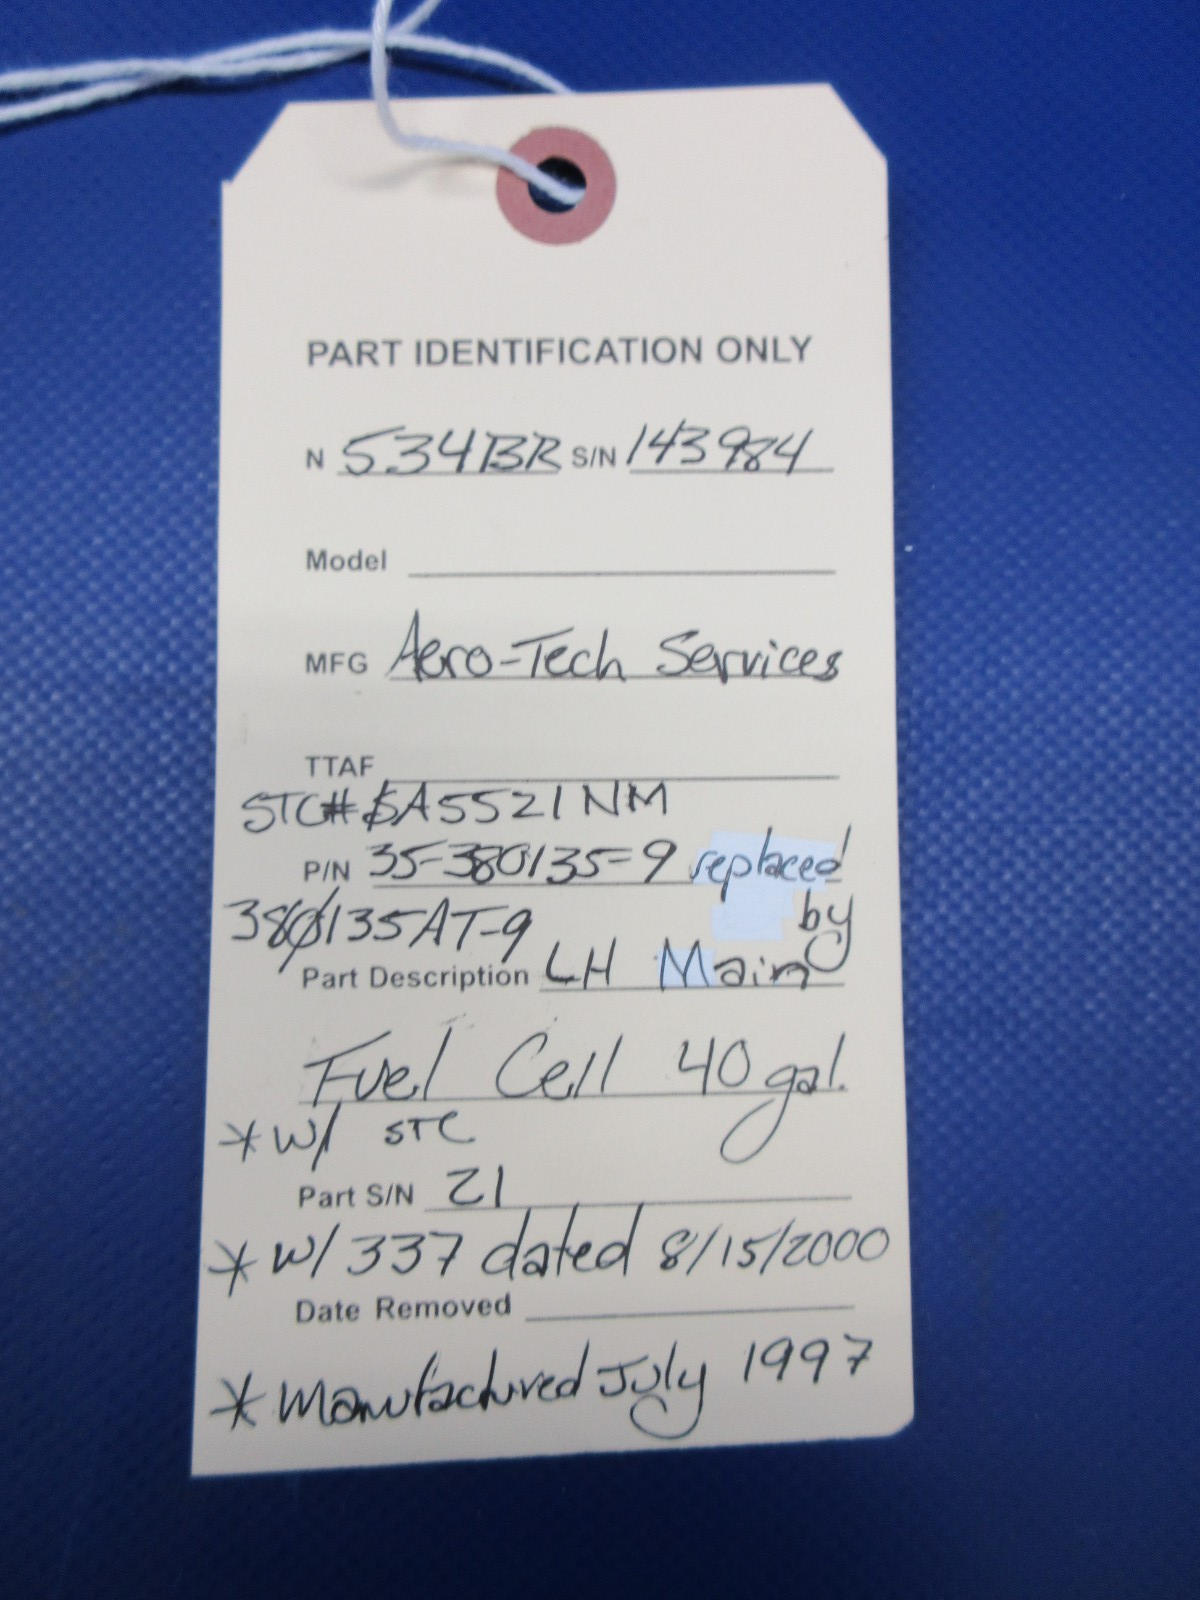 PART IDENTIFICATION ONLY
N 534BR S/N 143984
Model
MFG Aero-Tech Services
TTAF
STC# SA5521NM
P/N 35-380135-9 replaced
380135AT-9 by
Part Description LH Main
Fuel Cell 40 gal.
* W/ STC
Part S/N 21
* W/ 337 dated 8/15/2000
Date Removed
* Manufactured July 1997